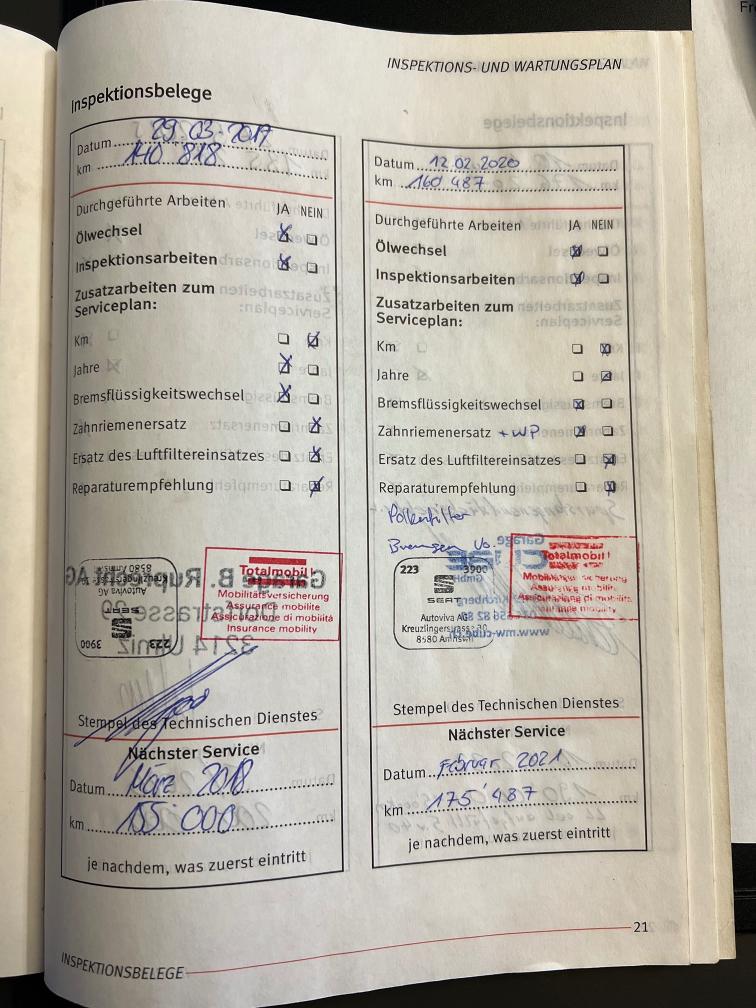 INSPEKTIONS- UND WARTUNGSPLAN
Inspektionsbelege
Datum 29.03.2017
km 140'818
Durchgeführte Arbeiten JA NEIN
Ölwechsel
Inspektionsarbeiten
Zusatzarbeiten zum
Serviceplan:
Km
Jahre
Bremsflüssigkeitswechsel
Zahnriemenersatz
Ersatz des Luftfiltereinsatzes
Reparaturempfehlung
223 3900
SEAT
Autoviva AG
Kreuzlingerstrasse
8580 Amriswil
Totalmobil!
Mobilitätsversicherung
Assurance mobilite
Assicurazione di mobilità
Insurance mobility
Stempel des Technischen Dienstes
Nächster Service
Datum März 2018
km 155'000
je nachdem, was zuerst eintritt
Datum 12.02.2020
km 160'487
Durchgeführte Arbeiten JA NEIN
Ölwechsel
Inspektionsarbeiten
Zusatzarbeiten zum
Serviceplan:
Km
Jahre
Bremsflüssigkeitswechsel
Zahnriemenersatz + WP
Ersatz des Luftfiltereinsatzes
Reparaturempfehlung
Pollenfilter
Bremsen Vo.
223 3900
SEAT
Autoviva AG
Kreuzlingerstrasse
8580 Amriswil
Totalmobil!
Mobilitätsversicherung
Assurance mobilite
Assicurazione di mobilità
Insurance mobility
Stempel des Technischen Dienstes
Nächster Service
Datum Februar 2021
km 175'487
je nachdem, was zuerst eintritt
INSPEKTIONSBELEGE
21